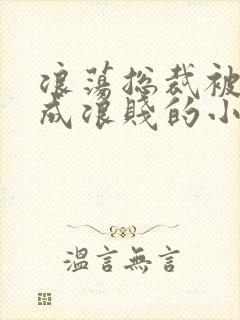 浪蕩总裁被
成浪賤的小
溫言無言